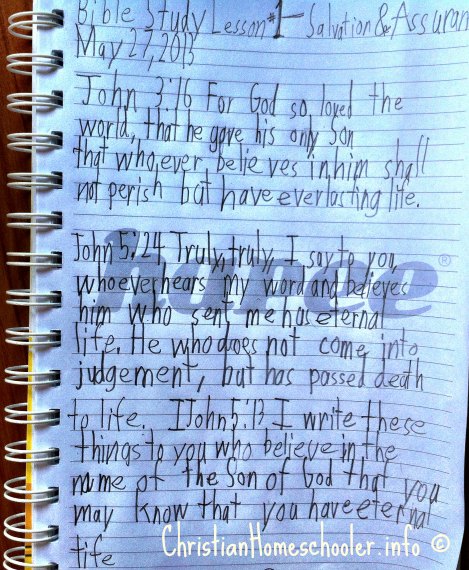 Bible Study Lesson #1 - Salvation & Assuran
May 27, 2013
John 3:16 For God so loved the
world, that he gave his only Son
that whoever believes in him shall
not perish but have everlasting life.
John 5:24 Truly, truly, I say to you,
whoever hears my word and believes
him who sent me has eternal
life. He who does not come into
judgement, but has passed death
to life. I John 5:13 I write these
things to you who believe in the
name of the Son of God that you
may know that you have eternal
life
ChristianHomeschooler.info ©